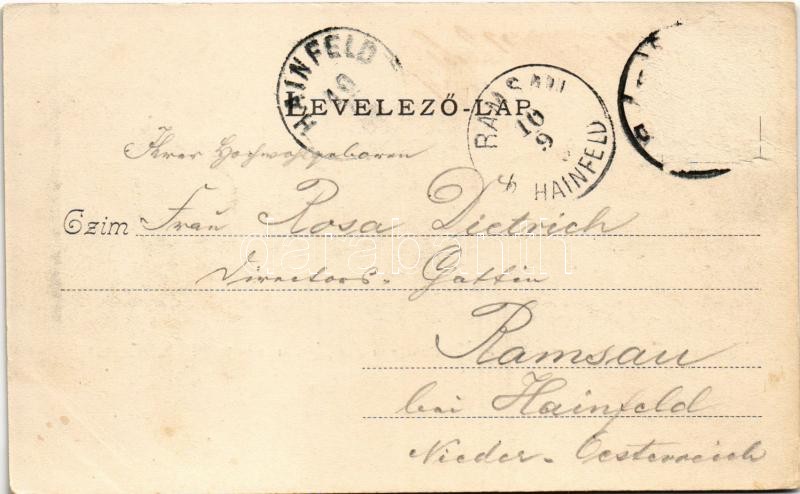 HAINFELD
10
LEVELEZŐ-LAP
RAMSAU
10
9
HAINFELD
Ihrer Hochwohlgeboren
Czim Frau Rosa Dietrich
darabanth
Directors- Gattin
Ramsau
bei Hainfeld
Nieder-Oesterreich